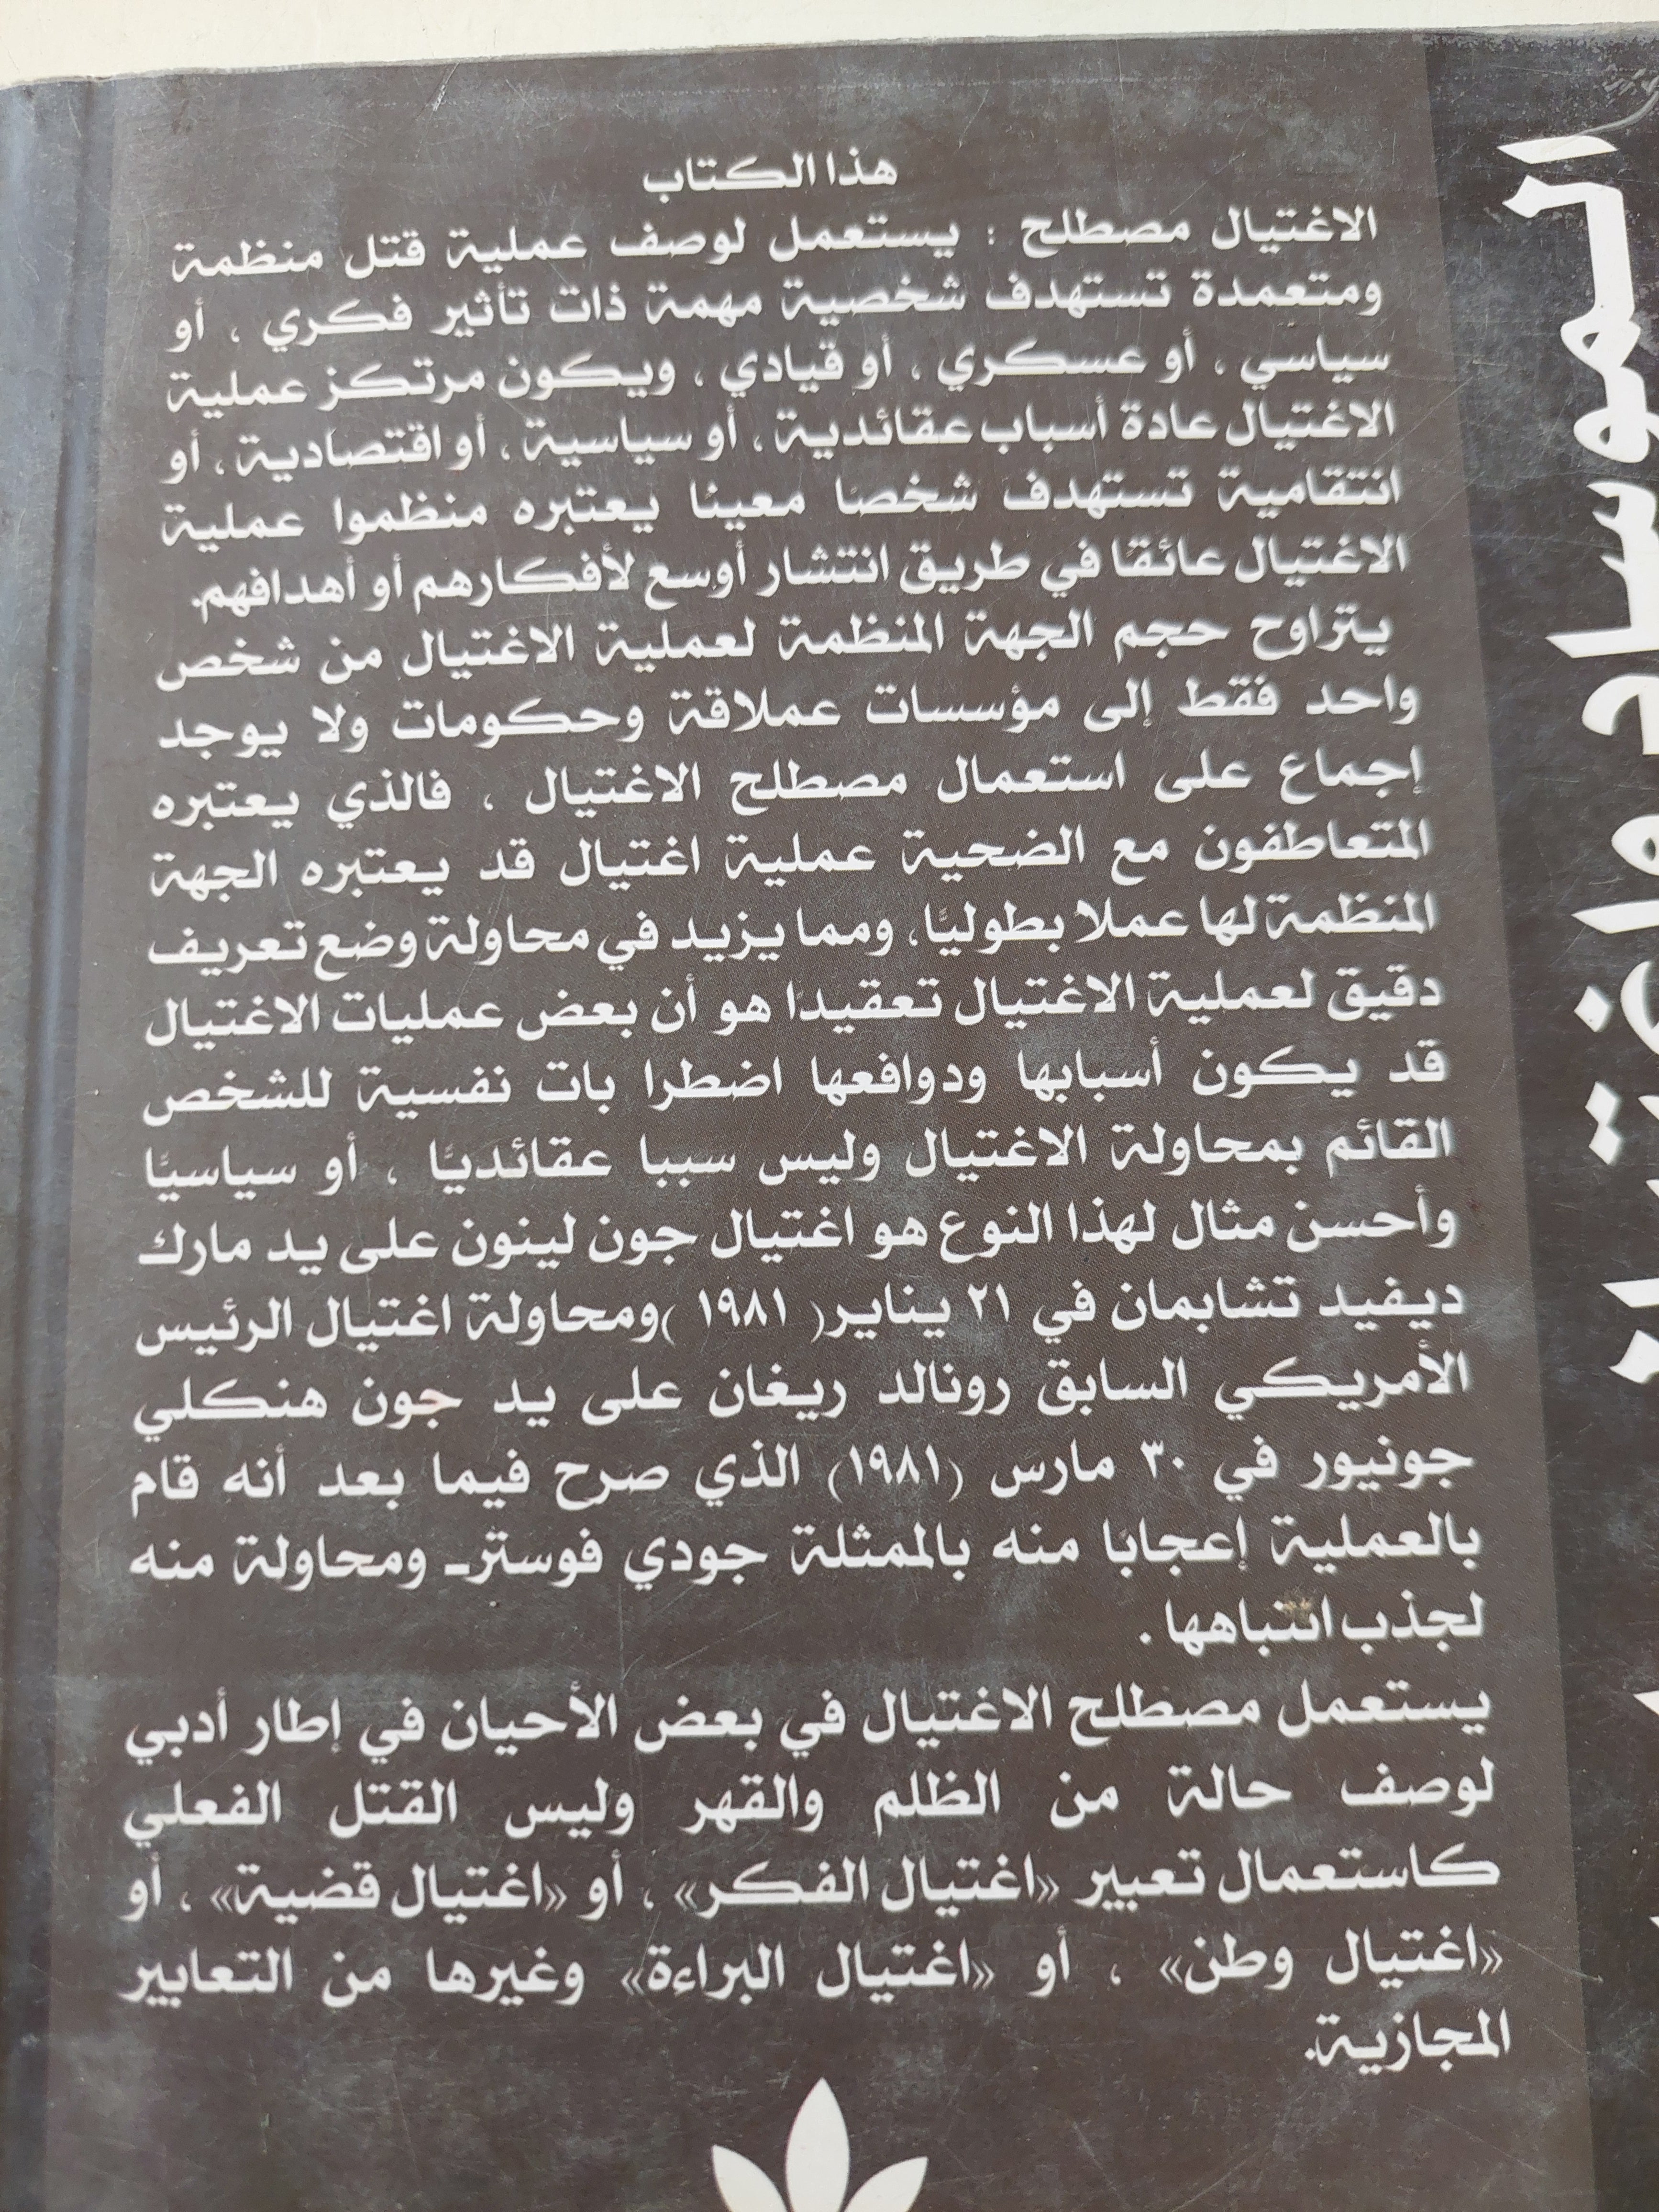 هذا الكتاب
الاغتيال مصطلح : يستعمل لوصف عملية قتل منظمة
ومتعمدة تستهدف شخصية مهمة ذات تأثير فكري ، أو
سياسي ، أو عسكري ، أو قيادي ، ويكون مرتكز عملية
الاغتيال عادة أسباب عقائدية ، أو سياسية ، أو اقتصادية ، أو
انتقامية تستهدف شخصًا معينًا يعتبره منظموا عملية
الاغتيال عائقًا في طريق انتشار أوسع لأفكارهم أو أهدافهم.
يتراوح حجم الجهة المنظمة لعملية الاغتيال من شخص
واحد فقط إلى مؤسسات عملاقة وحكومات ولا يوجد
إجماع على استعمال مصطلح الاغتيال ، فالذي يعتبره
المتعاطفون مع الضحية عملية اغتيال قد يعتبره الجهة
المنظمة لها عملا بطوليًا، ومما يزيد في محاولة وضع تعريف
دقيق لعملية الاغتيال تعقيدًا هو أن بعض عمليات الاغتيال
قد يكون أسبابها ودوافعها اضطرا بات نفسية للشخص
القائم بمحاولة الاغتيال وليس سببا عقائديًا ، أو سياسيًا
وأحسن مثال لهذا النوع هو اغتيال جون لينون على يد مارك
ديفيد تشابمان في ٢١ يناير( ١٩٨١ )ومحاولة اغتيال الرئيس
الأمريكي السابق رونالد ريغان على يد جون هنكلي
جونيور في ٣٠ مارس (١٩٨١) الذي صرح فيما بعد أنه قام
بالعملية إعجابًا منه بالممثلة جودي فوسترـ ومحاولة منه
لجذب انتباهها .
يستعمل مصطلح الاغتيال في بعض الأحيان في إطار أدبي
لوصف حالة من الظلم والقهر وليس القتل الفعلي
كاستعمال تعبير «اغتيال الفكر» ، أو «اغتيال قضية» ، أو
«اغتيال وطن» ، أو «اغتيال البراءة» وغيرها من التعابير
المجازية.
الموساد